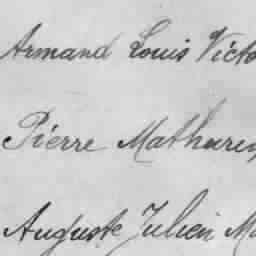 Armand Louis Victo
Pierre Mathurin
Auguste Julien M